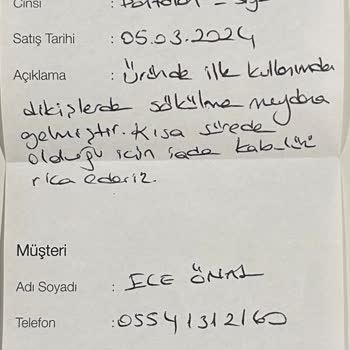 Cinsi : Pantolon - Siy
Satış Tarihi : 05.03.2024
Açıklama : Üründe ilk kullanımda
dikişlerde sökülme meydana
gelmiştir. Kısa sürede
olduğu için iade kabulünü
rica ederiz.
Müşteri
Adı Soyadı : ECE ÖNAL
Telefon : 05541312160